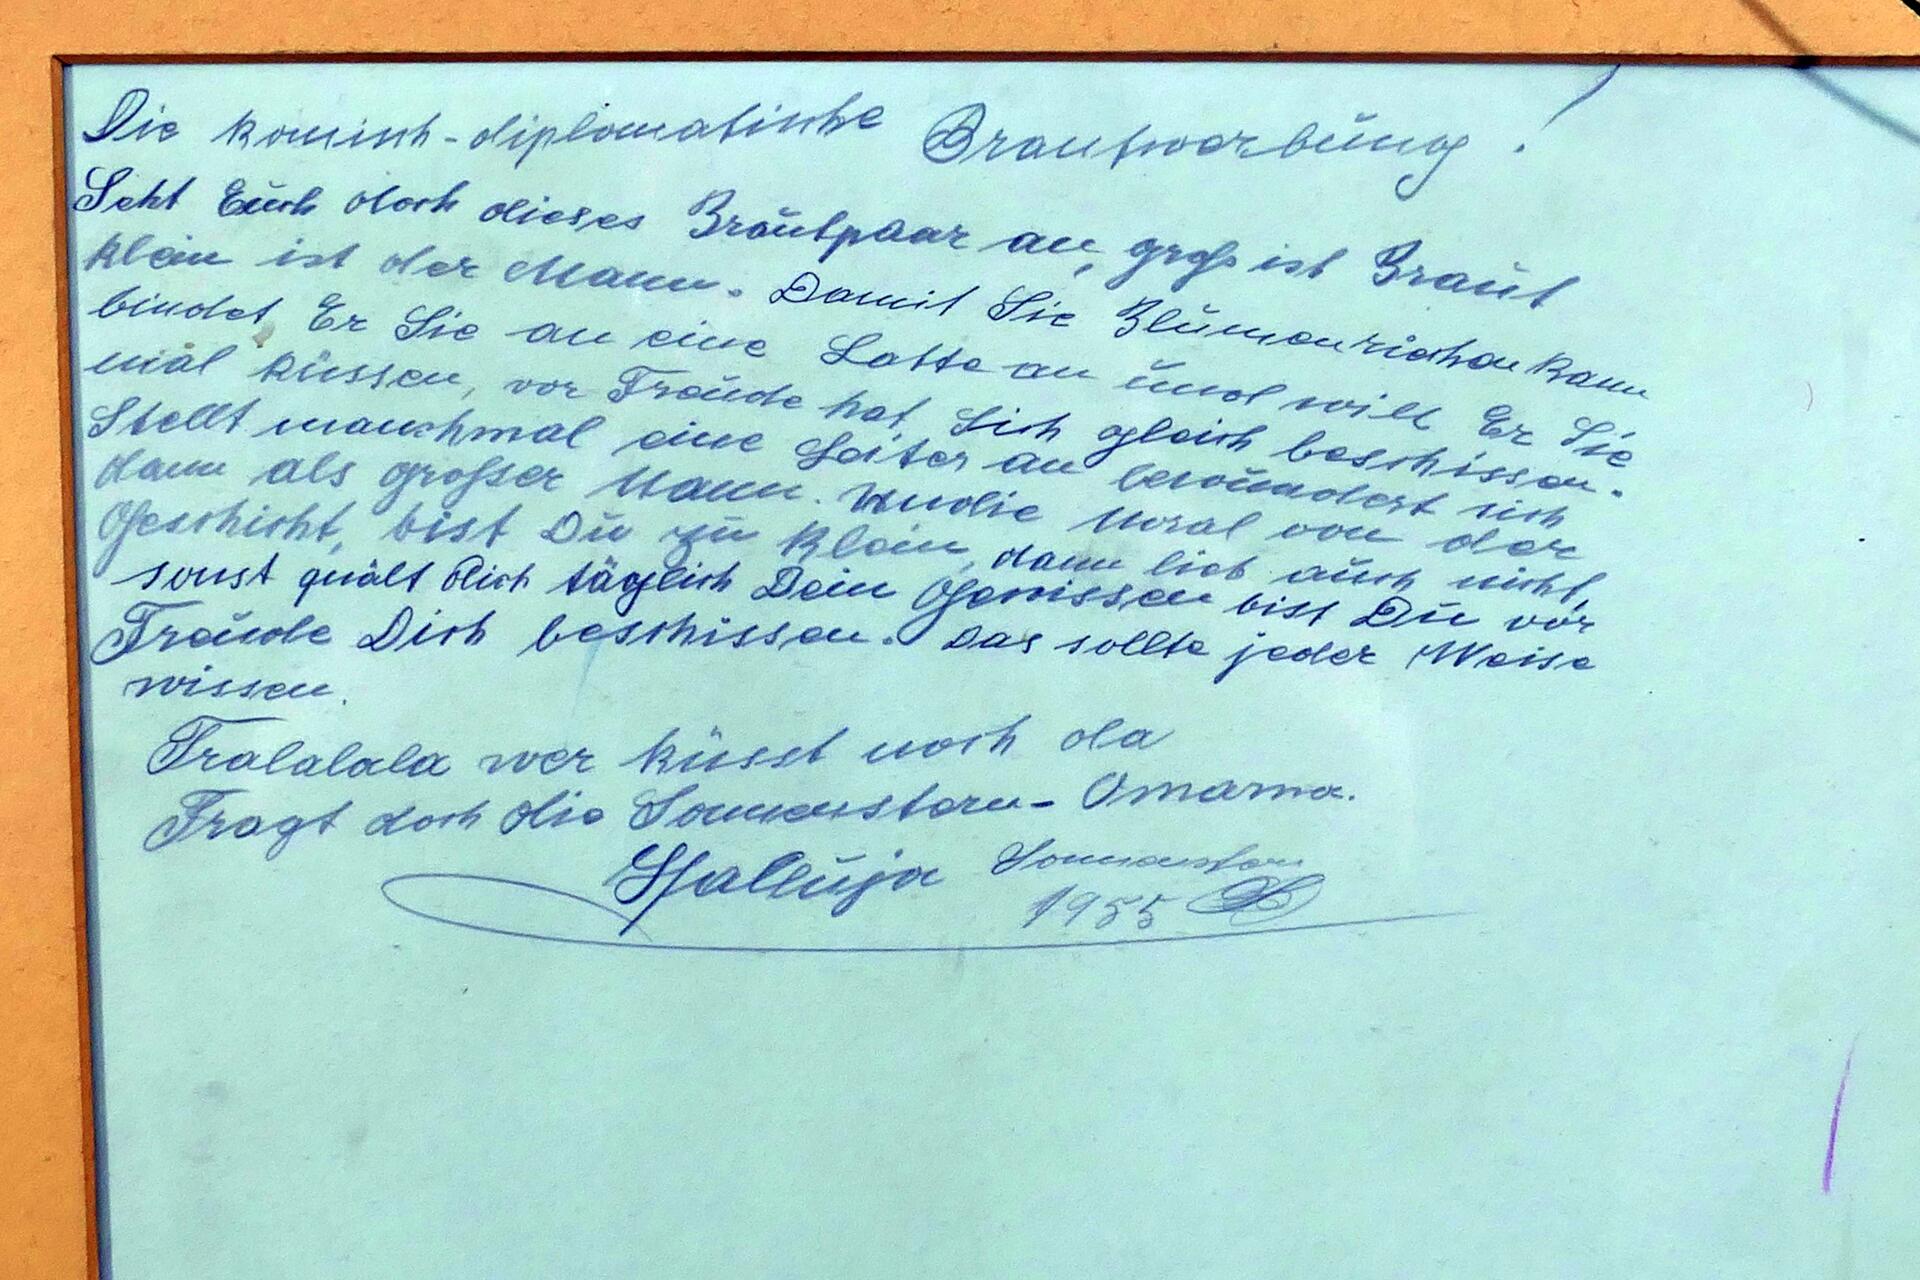 Die komisch-diplomatische Brautwerbung!
Seht Euch doch dieses Brautpaar an, groß ist Braut
klein ist der Mann. Damit Sie Blumen riechen kann
bindet Er Sie an eine Latte an und will Er Sie
mal küssen, vor Freude hat Sich gleich beschissen.
Stellt manchmal eine Leiter an bewundert sich
dann als großer Mann. Undie Moral von der
Geschicht, bist Du zu klein, dann lieb auch nicht,
sonst quält dich täglich Dein Gewissen bist Du vor
Freude Dich beschissen. Das sollte jeder Weise
wissen.
Tralalala wer küsst noch da
Fragt doch die Sonnenstern-Omama.
Halluja Sonnenstern
1955